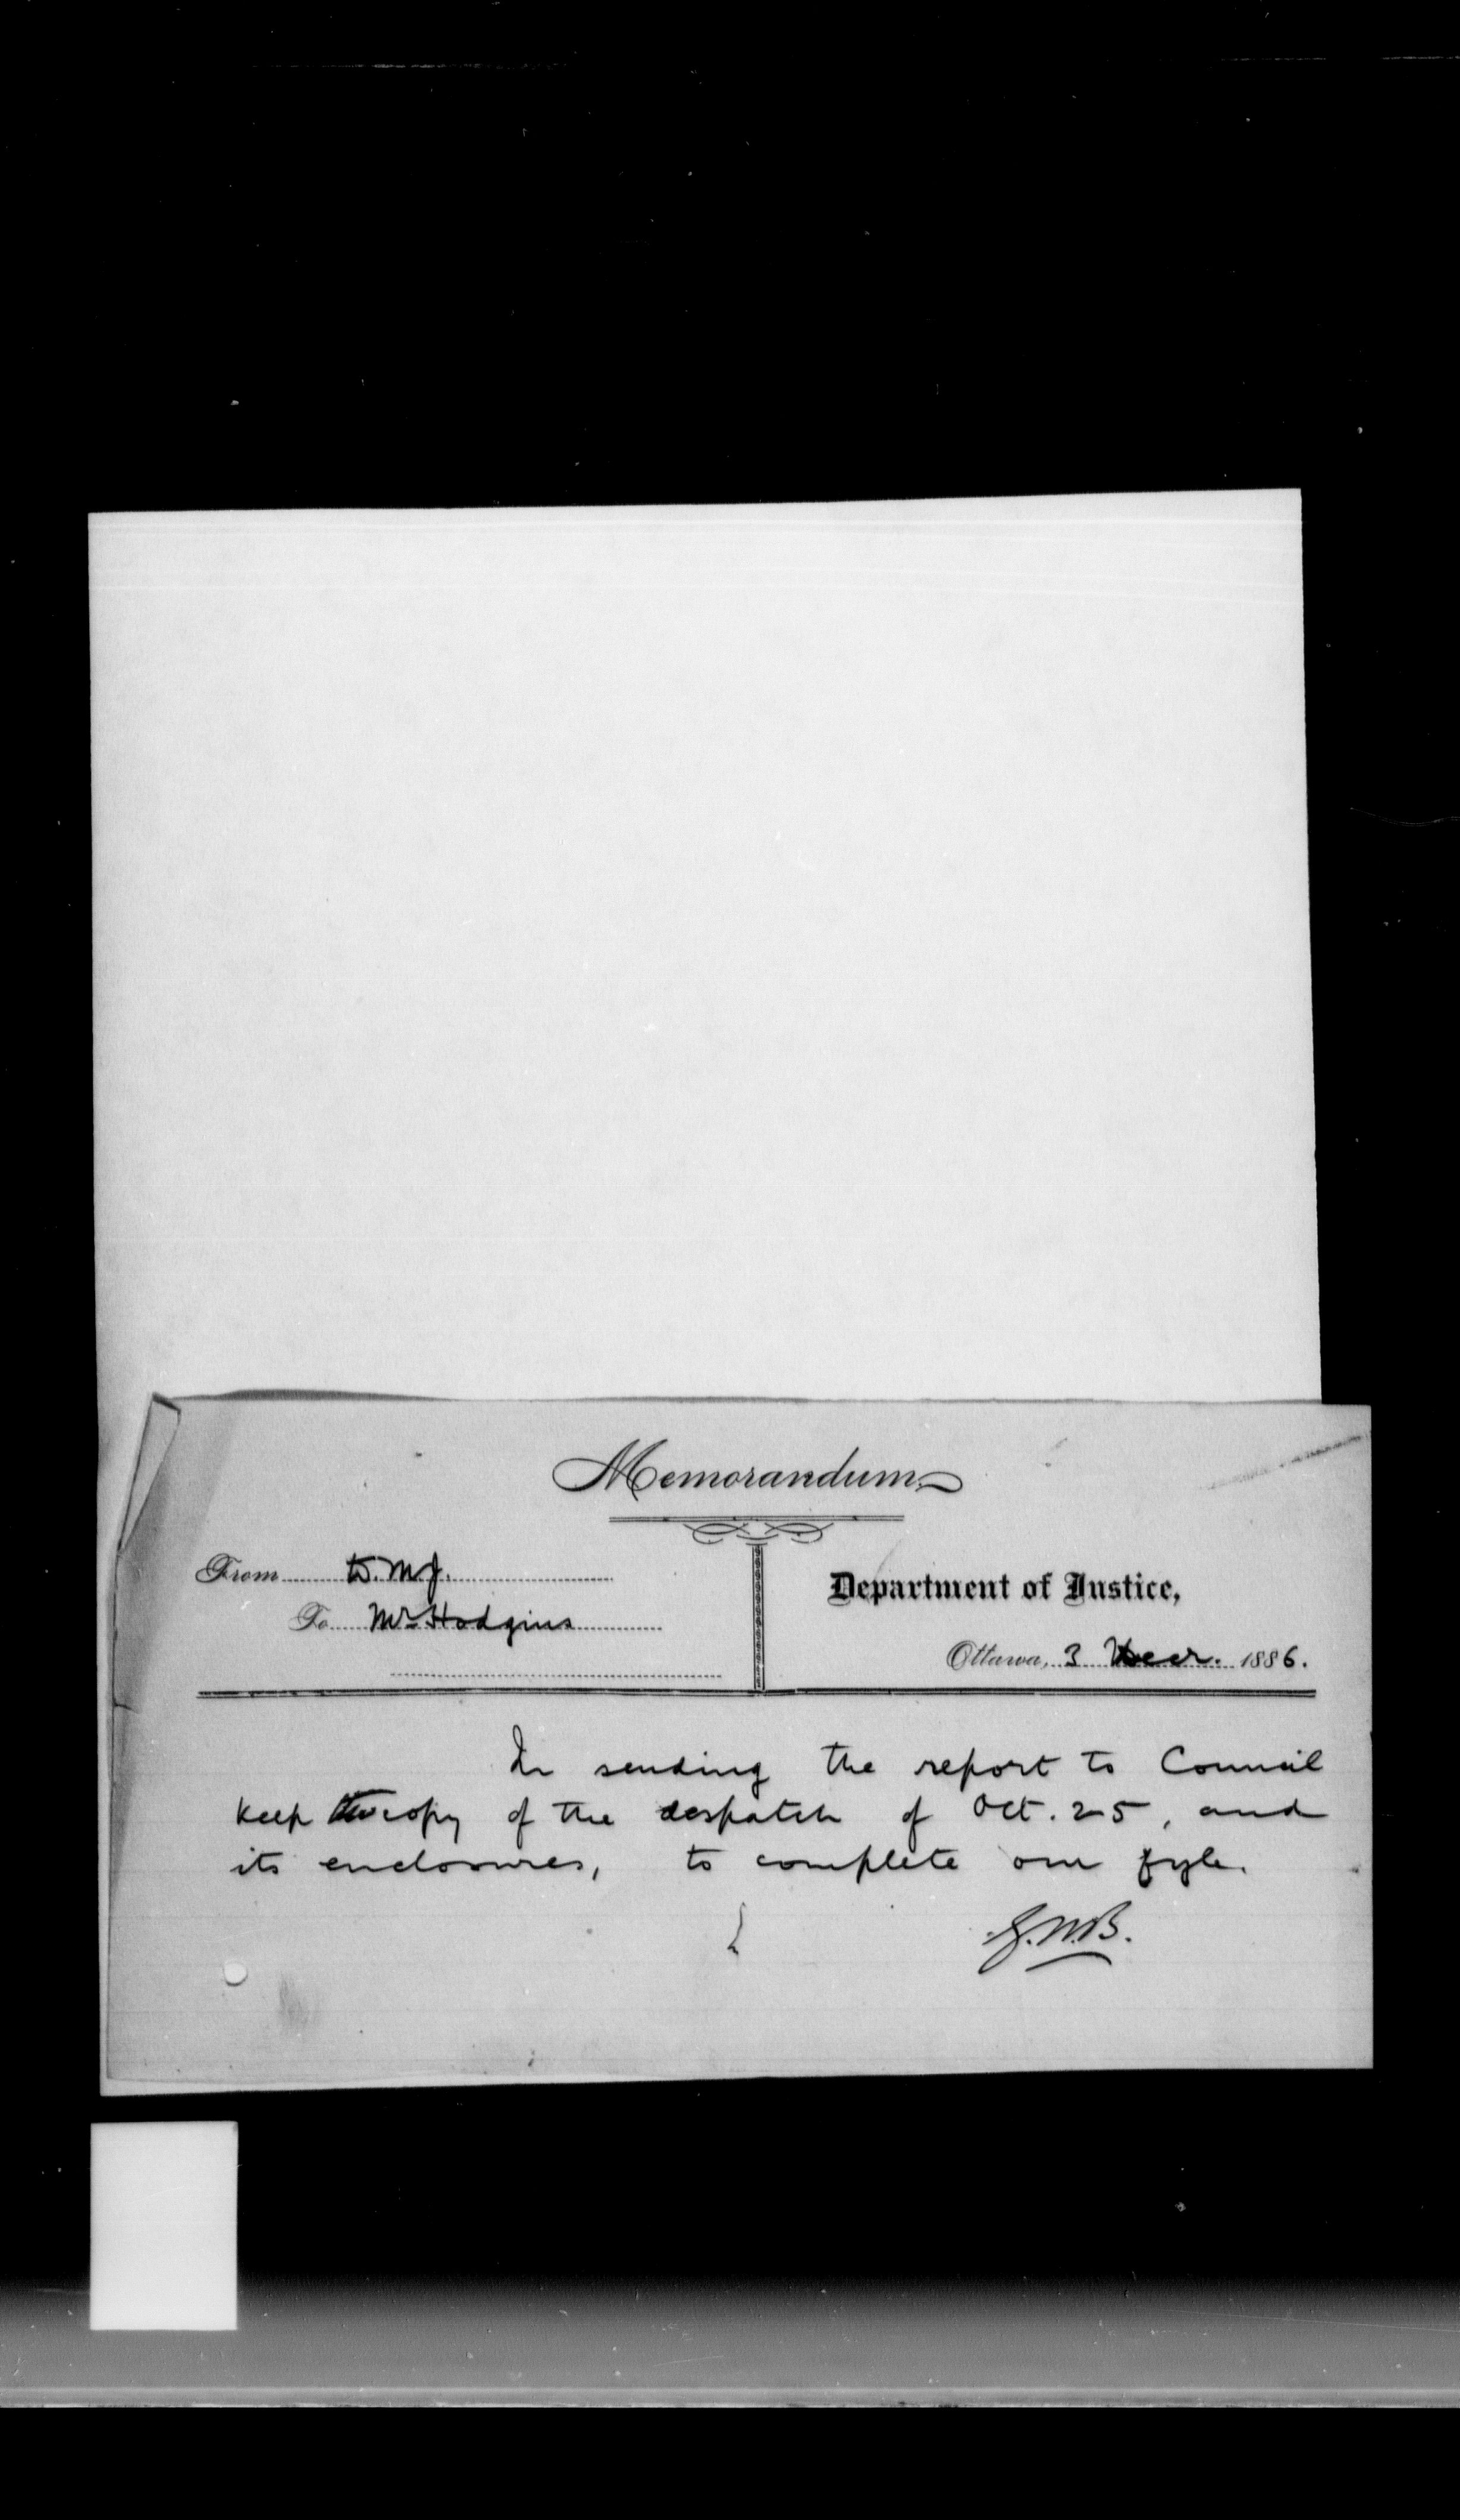 Memorandum.
From D.M.J.
To Mr Hodgins
Department of Justice,
Ottawa, 3 Decr. 1886.
In sending the report to Council
keep copy of the despatch of Oct. 25, and
its enclosures, to complete our fyle.
G.W.B.